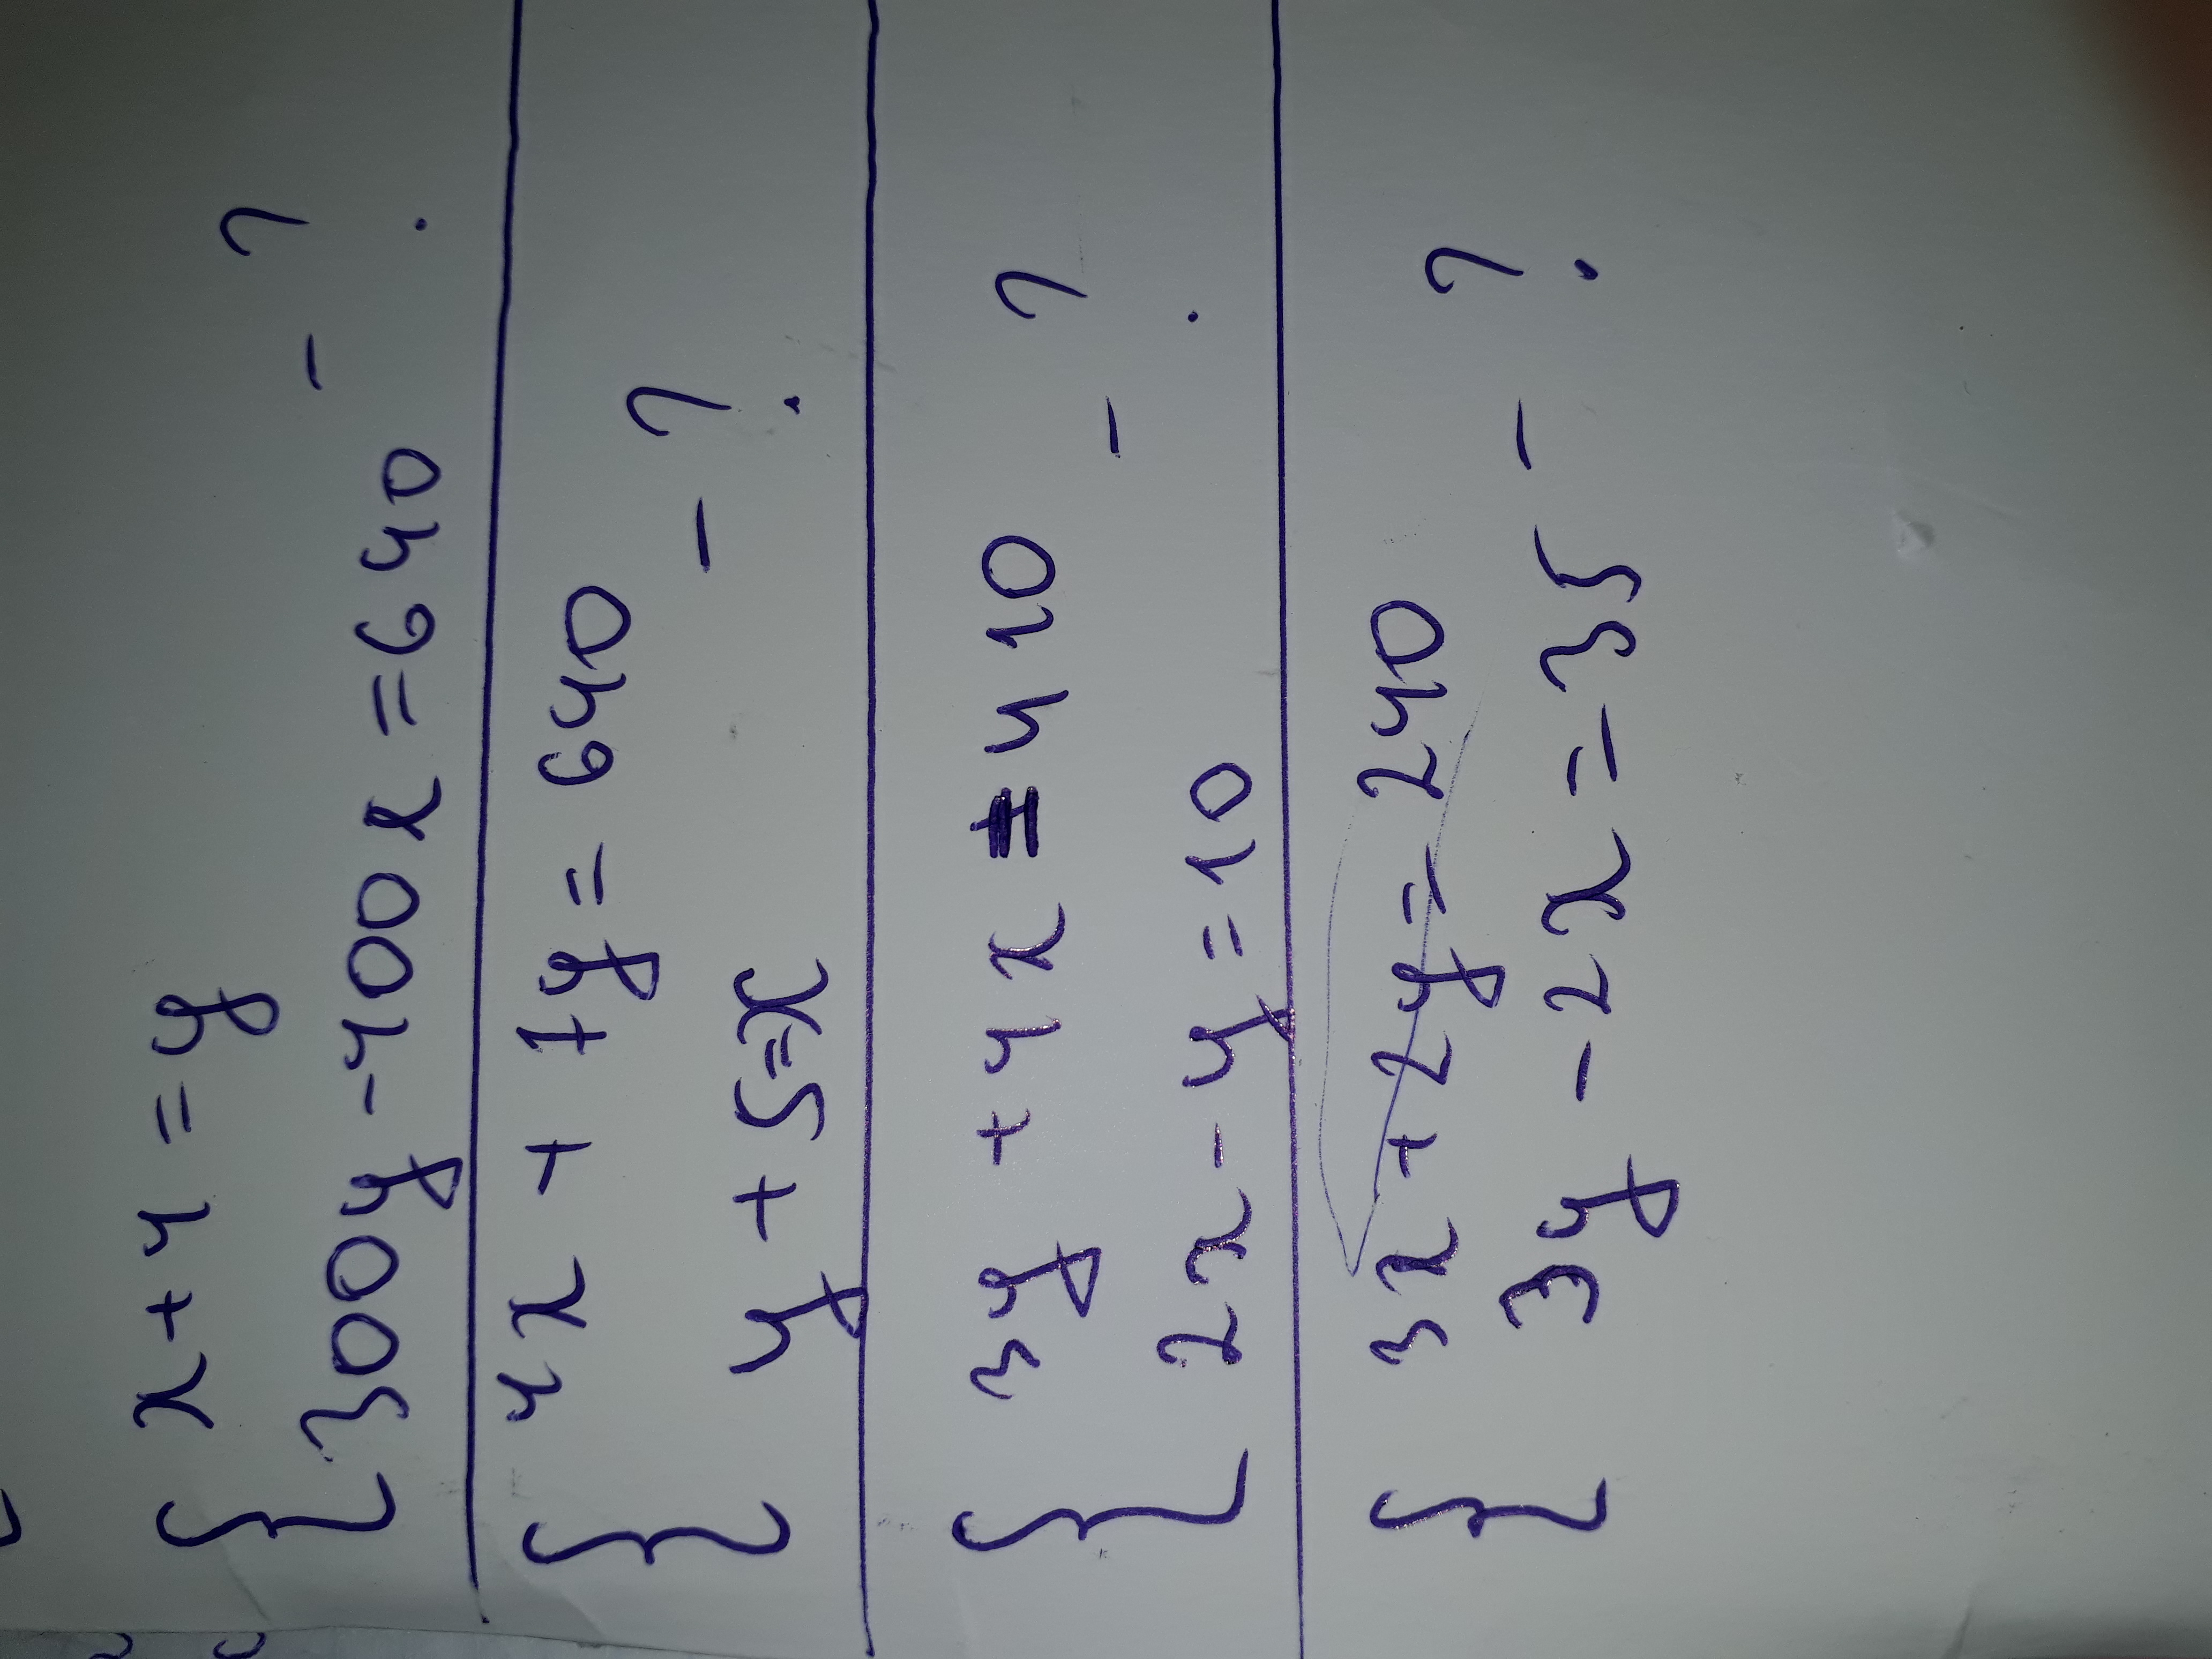 x + 4 = y
300y - 400x = 640 - ?
4x + 7y = 640
y + 5 = x - ?
3y + 4x = 410
2x - y = 10 - ?
3x + 2y = 240
3y - 2x = 35 - ?